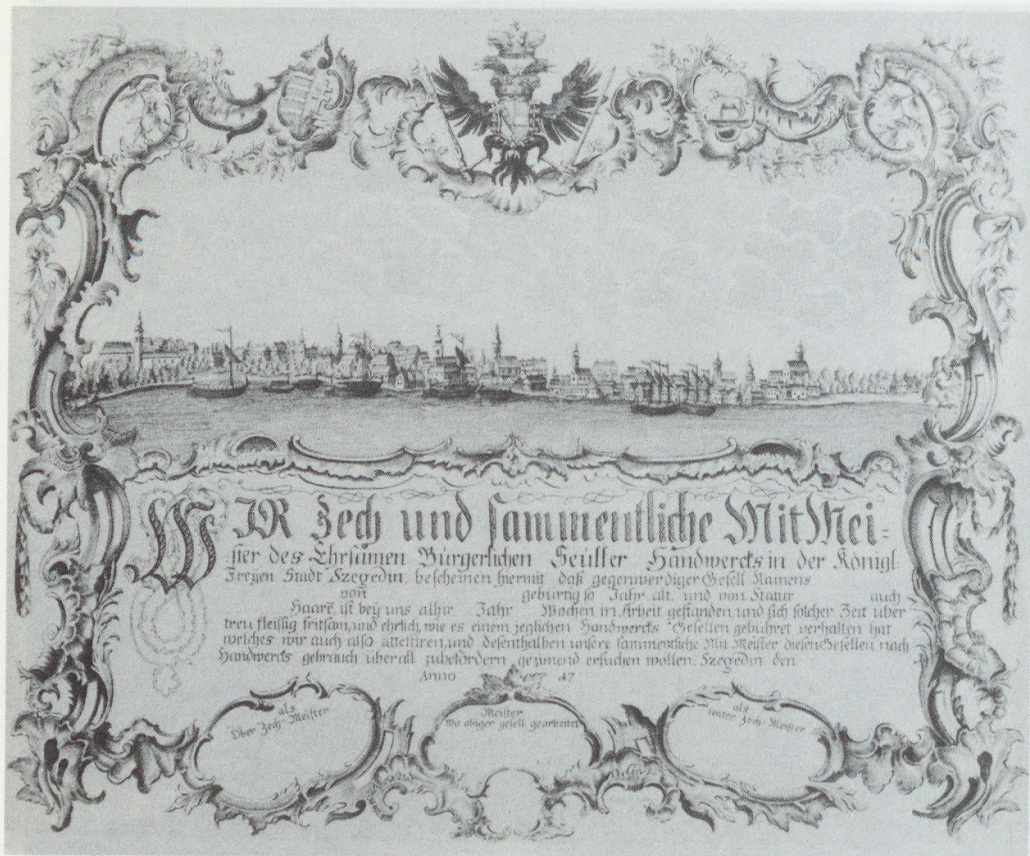 WIR Zech und sammentliche Mit Mei=
ster des Ehrsumen Bürgerlichen Seüller Handwercks in der Königl:
Freyen Stadt Szegedin, bescheinen hiermit daß gegenwerdiger Gesell Namens
von gebürtig so Jahr alt, und von Statur auch
Haare, ist bey uns alhir Jahr Wochen in Arbeit gestanden, und sich solcher Zeit über
treu fleissig fritsam, und ehrlich, wie es einem jeglichen Handwercks Gesellen gebühret verhalten hat
welches wir auch also attestiren, und desenthalben unsere sammentliche Mit Meister diesen Gesellen nach
Handwercks gebrauch überall zubefördern geziemend ersuchen wollen. Szegedin den
Anno 17
als
Ober Zech-Meister
Meister
wo obiger gesell gearbeitet
als
unter Zech-Meister